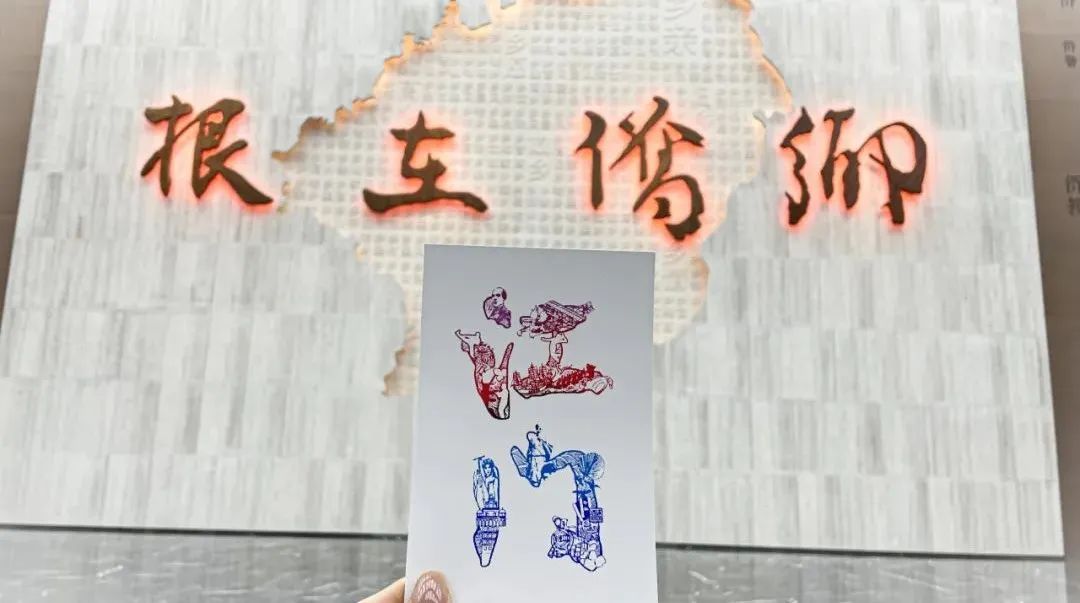 根在侨乡
江门